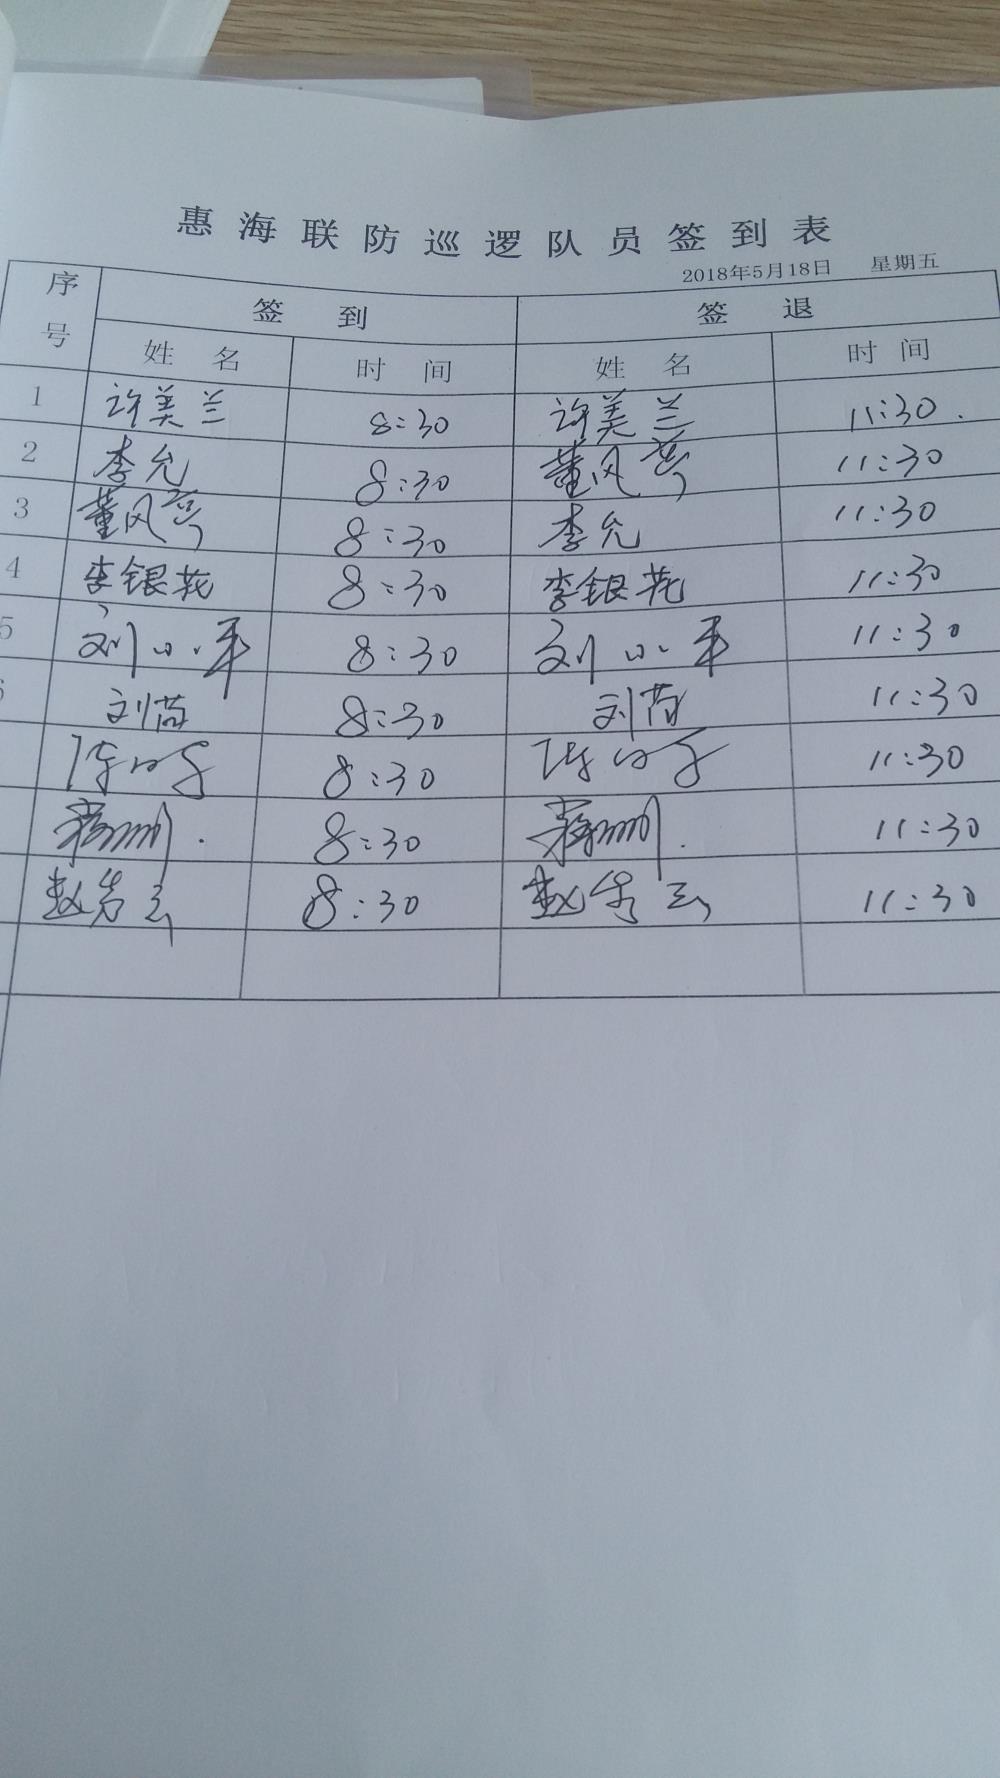 惠海联防巡逻队员签到表
2018年5月18日 星期五
序号 签到 签退
姓名 时间 姓名 时间
1 许美兰 8:30 许美兰 11:30.
2 李允 8:30 董风 11:30
3 董风 8:30 李允 11:30
4 李银花 8:30 李银花 11:30
5 刘小平 8:30 刘小平 11:30
刘苗 8:30 刘苗 11:30
陈 8:30 陈 11:30
8:30 11:30
赵 云 8:30 赵 云 11:30